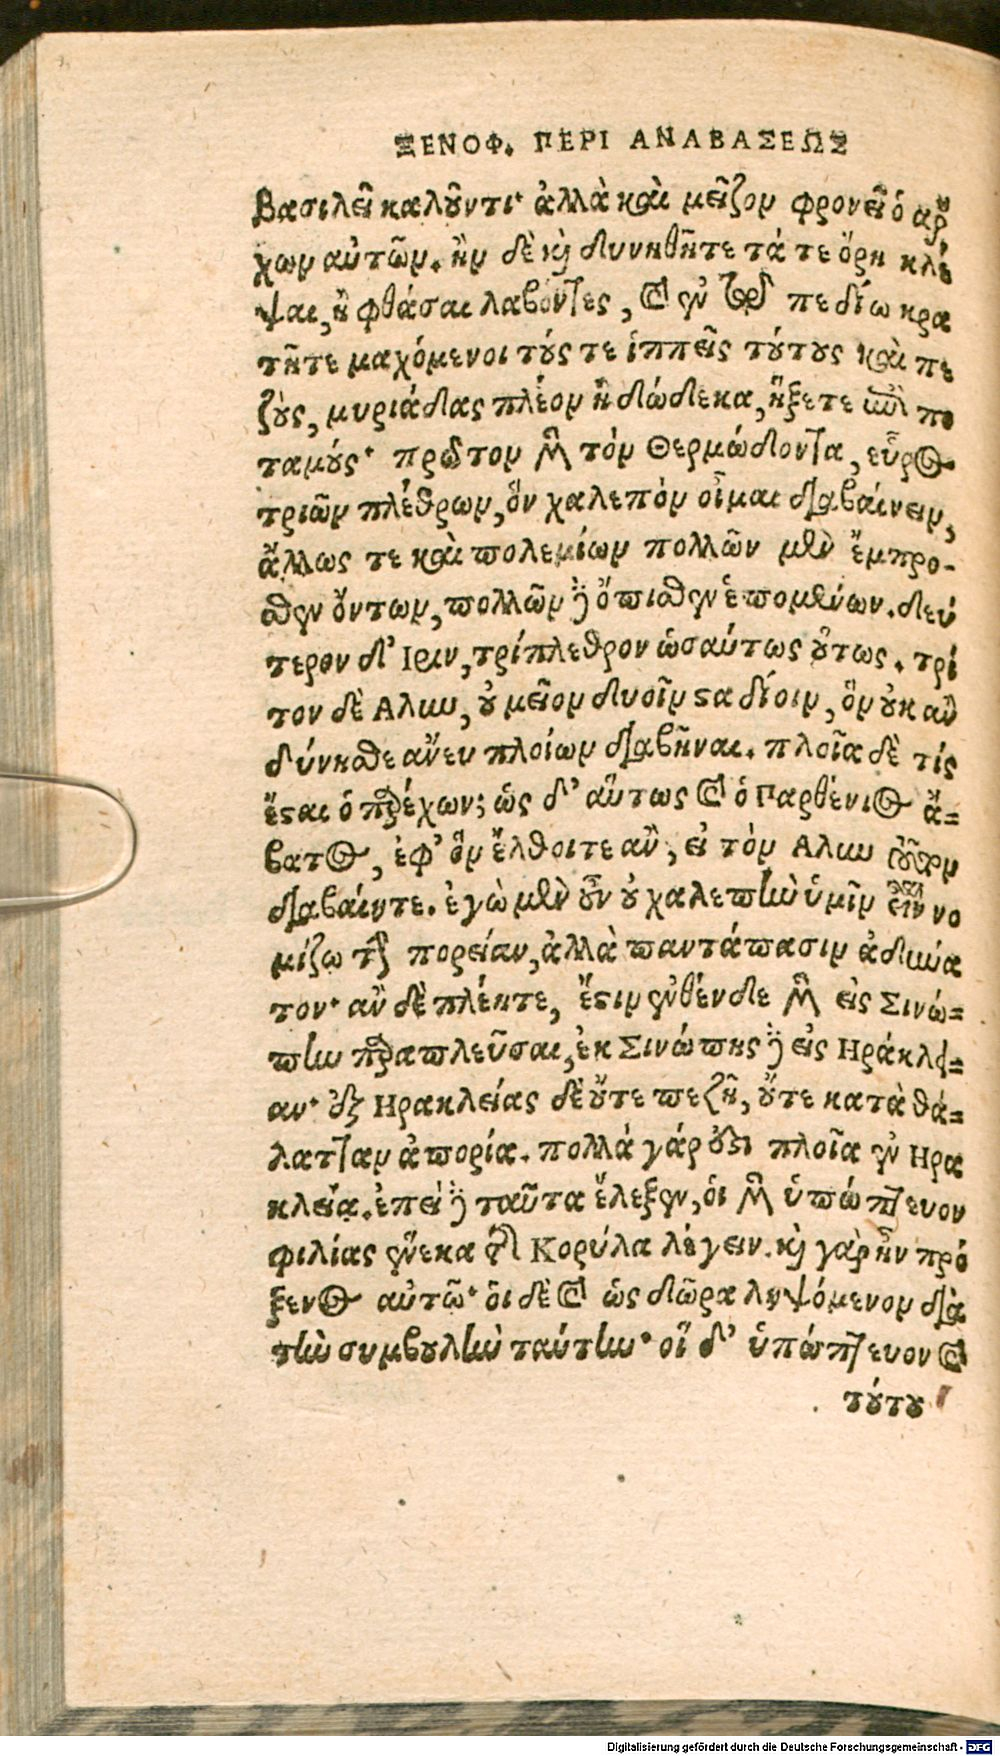 ΞΕΝΟΦ. ΠΕΡΙ ΑΝΑΒΑΣΕΩΣ
βασιλεῖ καλοῦντι· ἀλλὰ καὶ μεῖζον φρονεῖ ὁ ἄρ
χων αὐτῶν. ἢν δὲ καὶ δυνηθῆτε τά τε ὄρη κλέ
ψαι, ἢ φθάσαι λαβόντες, καὶ ἐν τῷ πεδίω κρα
τῆτε μαχόμενοι τούς τε ἱππεῖς τούτους καὶ πε
ζοὺς, μυριάδας πλέον ἢ δώδεκα, ἥξετε ἐπὶ πο
ταμούς· πρῶτον μὲν τὸν Θερμώδοντα, εὖρος
τριῶν πλέθρων, ὃν χαλεπὸν οἶμαι διαβαίνειν,
ἄλλως τε καὶ πολεμίων πολλῶν μὲν ἔμπρο-
σθεν ὄντων, πολλῶν δὲ ὄπισθεν ἑπομένων. δεύ
τερον δ' Ιριν, τρίπλεθρον ὡσαύτως οὕτως. τρί
τον δὲ Αλυν, οὐ μεῖον δυοῖν σταδίοιν, ὃν οὐκ ἂν
δύνησθε ἄνευ πλοίων διαβῆναι. πλοῖα δὲ τίς
ἔσται ὁ παρέχων; ὡς δ' αὔτως καὶ ὁ Παρθένιος ἄ=
βατος, ἐφ' ὃν ἔλθοιτε ἂν, εἰ τὸν Αλυν
διαβαίητε. ἐγὼ μὲν οὖν οὐ χαλεπὴν ὑμῖν εἶναι νο
μίζω τὴν πορείαν, ἀλλὰ παντάπασιν ἀδύνα
τον· ἂν δὲ πλέητε, ἔστιν ἐνθένδε μὲν εἰς Σινώ=
πην παραπλεῦσαι, ἐκ Σινώπης δὲ εἰς Ηράκλει=
αν· ἐξ Ηρακλείας δὲ οὔτε πεζῆ, οὔτε κατὰ θά=
λατταν ἀπορία. πολλά γάρ ἐστι πλοῖα ἐν Ηρα
κλείᾳ. ἐπεὶ δὲ ταῦτα ἔλεξεν, οἱ μὲν ὑπώπτευον
φιλίας ἕνεκα τῆς Κορύλα λέγειν. καὶ γὰρ ἦν πρό
ξενος αὐτῶ· οἱ δὲ καὶ ὡς δῶρα ληψόμενον διὰ
τὴν συμβουλὴν ταύτην· οἵ δ' ὑπώπτευον καὶ
τούτου
Digitalisierung gefördert durch die Deutsche Forschungsgemeinschaft - DFG